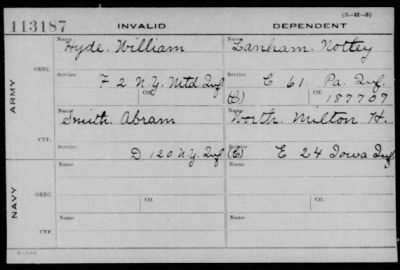 (3-H-3)
113187 INVALID DEPENDENT
Name Name
Hyde. William Lanham. Nottey
ORIG.
Service Service
F 2 N.Y. Mtd Inf C 61. Pa. Inf.
Ctf. Ctf.
(C) 187707
ARMY
Name Name
Smith. Abram North. Milton H.
CTF.
Service Service
D 120 N.Y. Inf (C) E 24 Iowa Inf
NAVY
Name Ctf. Name Ctf.
ORIG.
Name Name
CTF.